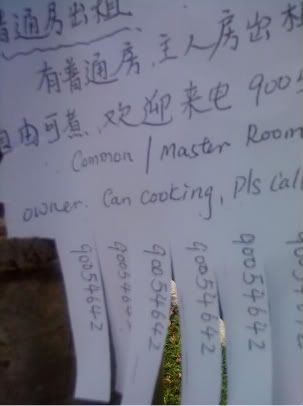 普通房出租
有普通房,主人房出租
自由可煮,欢迎来电 9005
Common / Master Room
owner. Can cooking, Pls Call
90054642
90054642
90054642
90054642
90054642